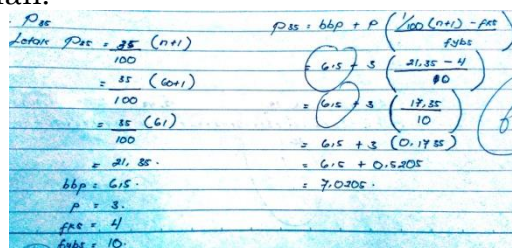 uan.
P35
Letak P35 = 35/100 (n+1)
= 35/100 (60+1)
= 35/100 (61)
= 21,35.
bbp = 6,5.
P = 3.
fks = 4
fybs = 10.
P35 = bbp + P (1/100 (n+1) - fks / fybs)
= 6,5 + 3 (21,35 - 4 / 10)
= 6,5 + 3 (17,35 / 10)
= 6,5 + 3 (0.1735)
= 6,5 + 0.5205
= 7,0205.